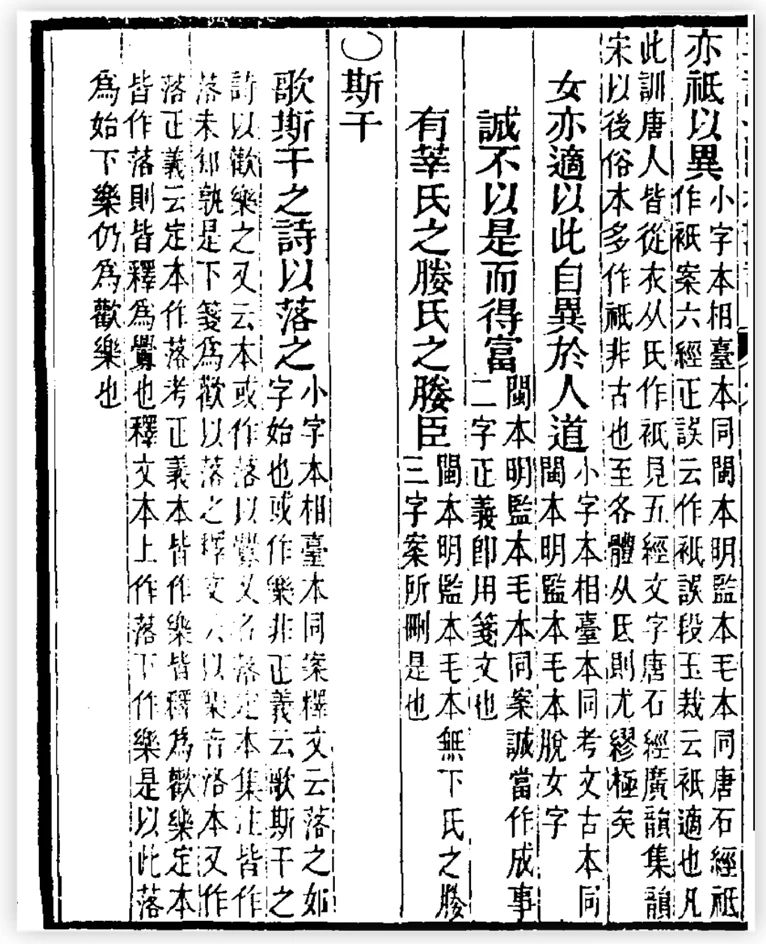 亦祇以異小字本相臺本同閩本明監本毛本同唐石經祇
作衹案六經正誤云作衹誤段玉裁云衹適也凡
此訓唐人皆從衣从氏作衹見五經文字唐石經廣韻集韻
宋以後俗本多作祇非古也至各體从氐則尤繆極矣
女亦適以此自異於人道小字本相臺本同考文古本同
閩本明監本毛本脫女字
誠不以是而得富閩本明監本毛本同案誠當作成事
二字正義卽用箋文也
有莘氏之媵氏之媵臣閩本明監本毛本無下氏之媵
三字案所刪是也
〇斯干
歌斯干之詩以落之小字本相臺本同案釋文云落之如
字始也或作樂非正義云歌斯干之
詩以歡樂之又云本或作落以釁又名落定本集注皆作
落未知孰是下箋爲歡以落之釋文云以樂音洛本又作
落正義云定本作落考正義本皆作樂皆釋爲歡樂定本
皆作落則皆釋爲釁也釋文本上作落下作樂是以此落
爲始下樂仍爲歡樂也